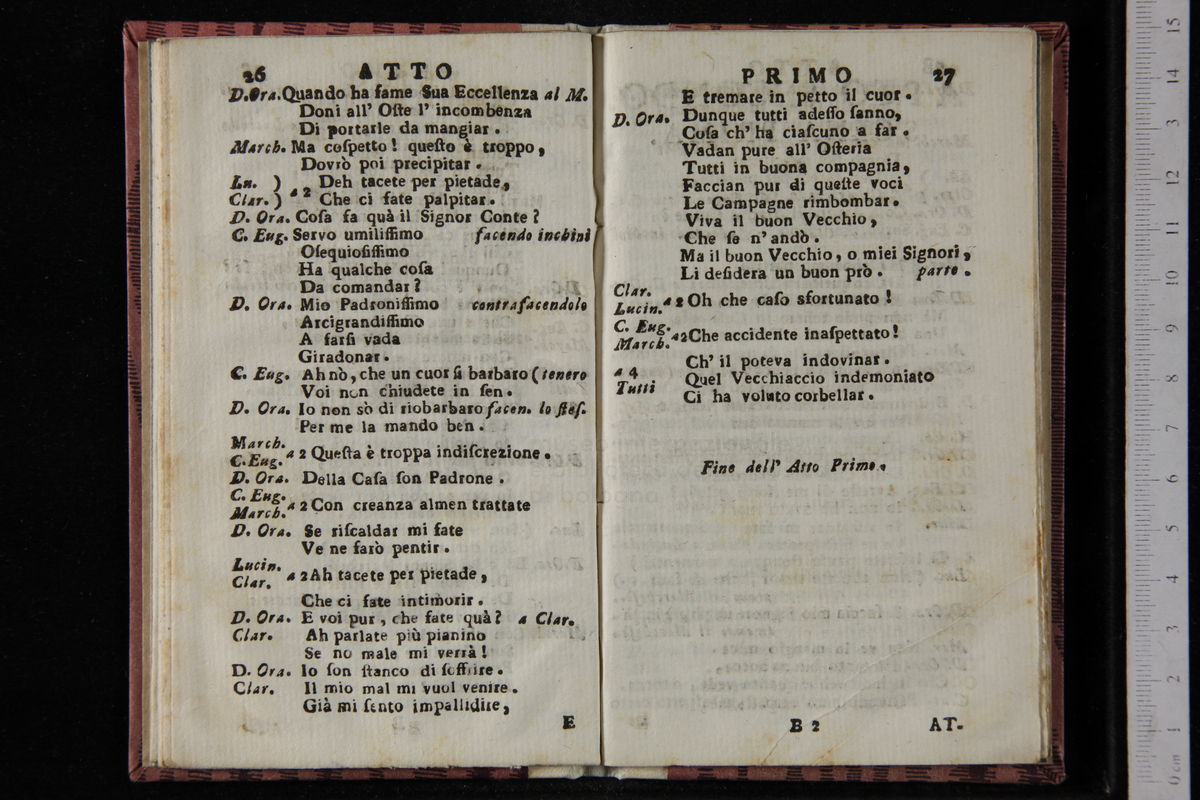 26 ATTO
D.Ora.Quando ha fame Sua Eccellenza al M.
Doni all' Oſte l' incombenza
Di portarle da mangiar .
March. Ma coſpetto! queſto è troppo,
Dovrò poi precipitar .
Lu. ) a 2 Deh tacete per pietade,
Clar. ) Che ci fate palpitar.
D. Ora. Coſa fa quà il Signor Conte?
C. Eug. Servo umiliſſimo facendo inchini
Oſequioſiſſimo
Ha qualche coſa
Da comandar?
D. Ora. Mio Padroniſſimo contrafacendolo
Arcigrandiſſimo
A farſi vada
Giradonar.
C. Eug. Ah nò, che un cuor ſi barbaro (tenero
Voi non chiudete in ſen.
D. Ora. Io non sò di riobarbaro facen. lo ſteſ.
Per me la mando ben .
March.
C.Eug. a 2 Queſta è troppa indiſcrezione.
D. Ora. Della Caſa ſon Padrone .
C. Eug.
March. a 2 Con creanza almen trattate
D. Ora. Se riſcaldar mi fate
Ve ne farò pentir .
Lucin.
Clar. a 2 Ah tacete per pietade,
Che ci fate intimorir .
D. Ora. E voi pur, che fate quà? a Clar.
Clar. Ah parlate più pianino
Se no male mi verrà!
D. Ora. Io ſon ſtanco di ſoffrire .
Clar. Il mio mal mi vuol venire .
Già mi ſento impallidire,
E
PRIMO 27
E tremare in petto il cuor .
D. Ora. Dunque tutti adeſſo ſanno,
Coſa ch' ha ciaſcuno a far .
Vadan pure all' Oſteria
Tutti in buona compagnia,
Faccian pur di queſte voci
Le Campagne rimbombar.
Viva il buon Vecchio,
Che ſe n' andò .
Ma il buon Vecchio, o miei Signori,
Li deſidera un buon prò . parte .
Clar.
Lucin. a 2 Oh che caſo sfortunato !
C. Eug.
March. a 2 Che accidente inaſpettato!
Ch' il poteva indovinar .
a 4
Tutti Quel Vecchiaccio indemoniato
Ci ha voluto corbellar .
Fine dell' Atto Primo.
B 2 AT-
0 cm 1 2 3 4 5 6 7 8 9 10 11 12 3 14 15